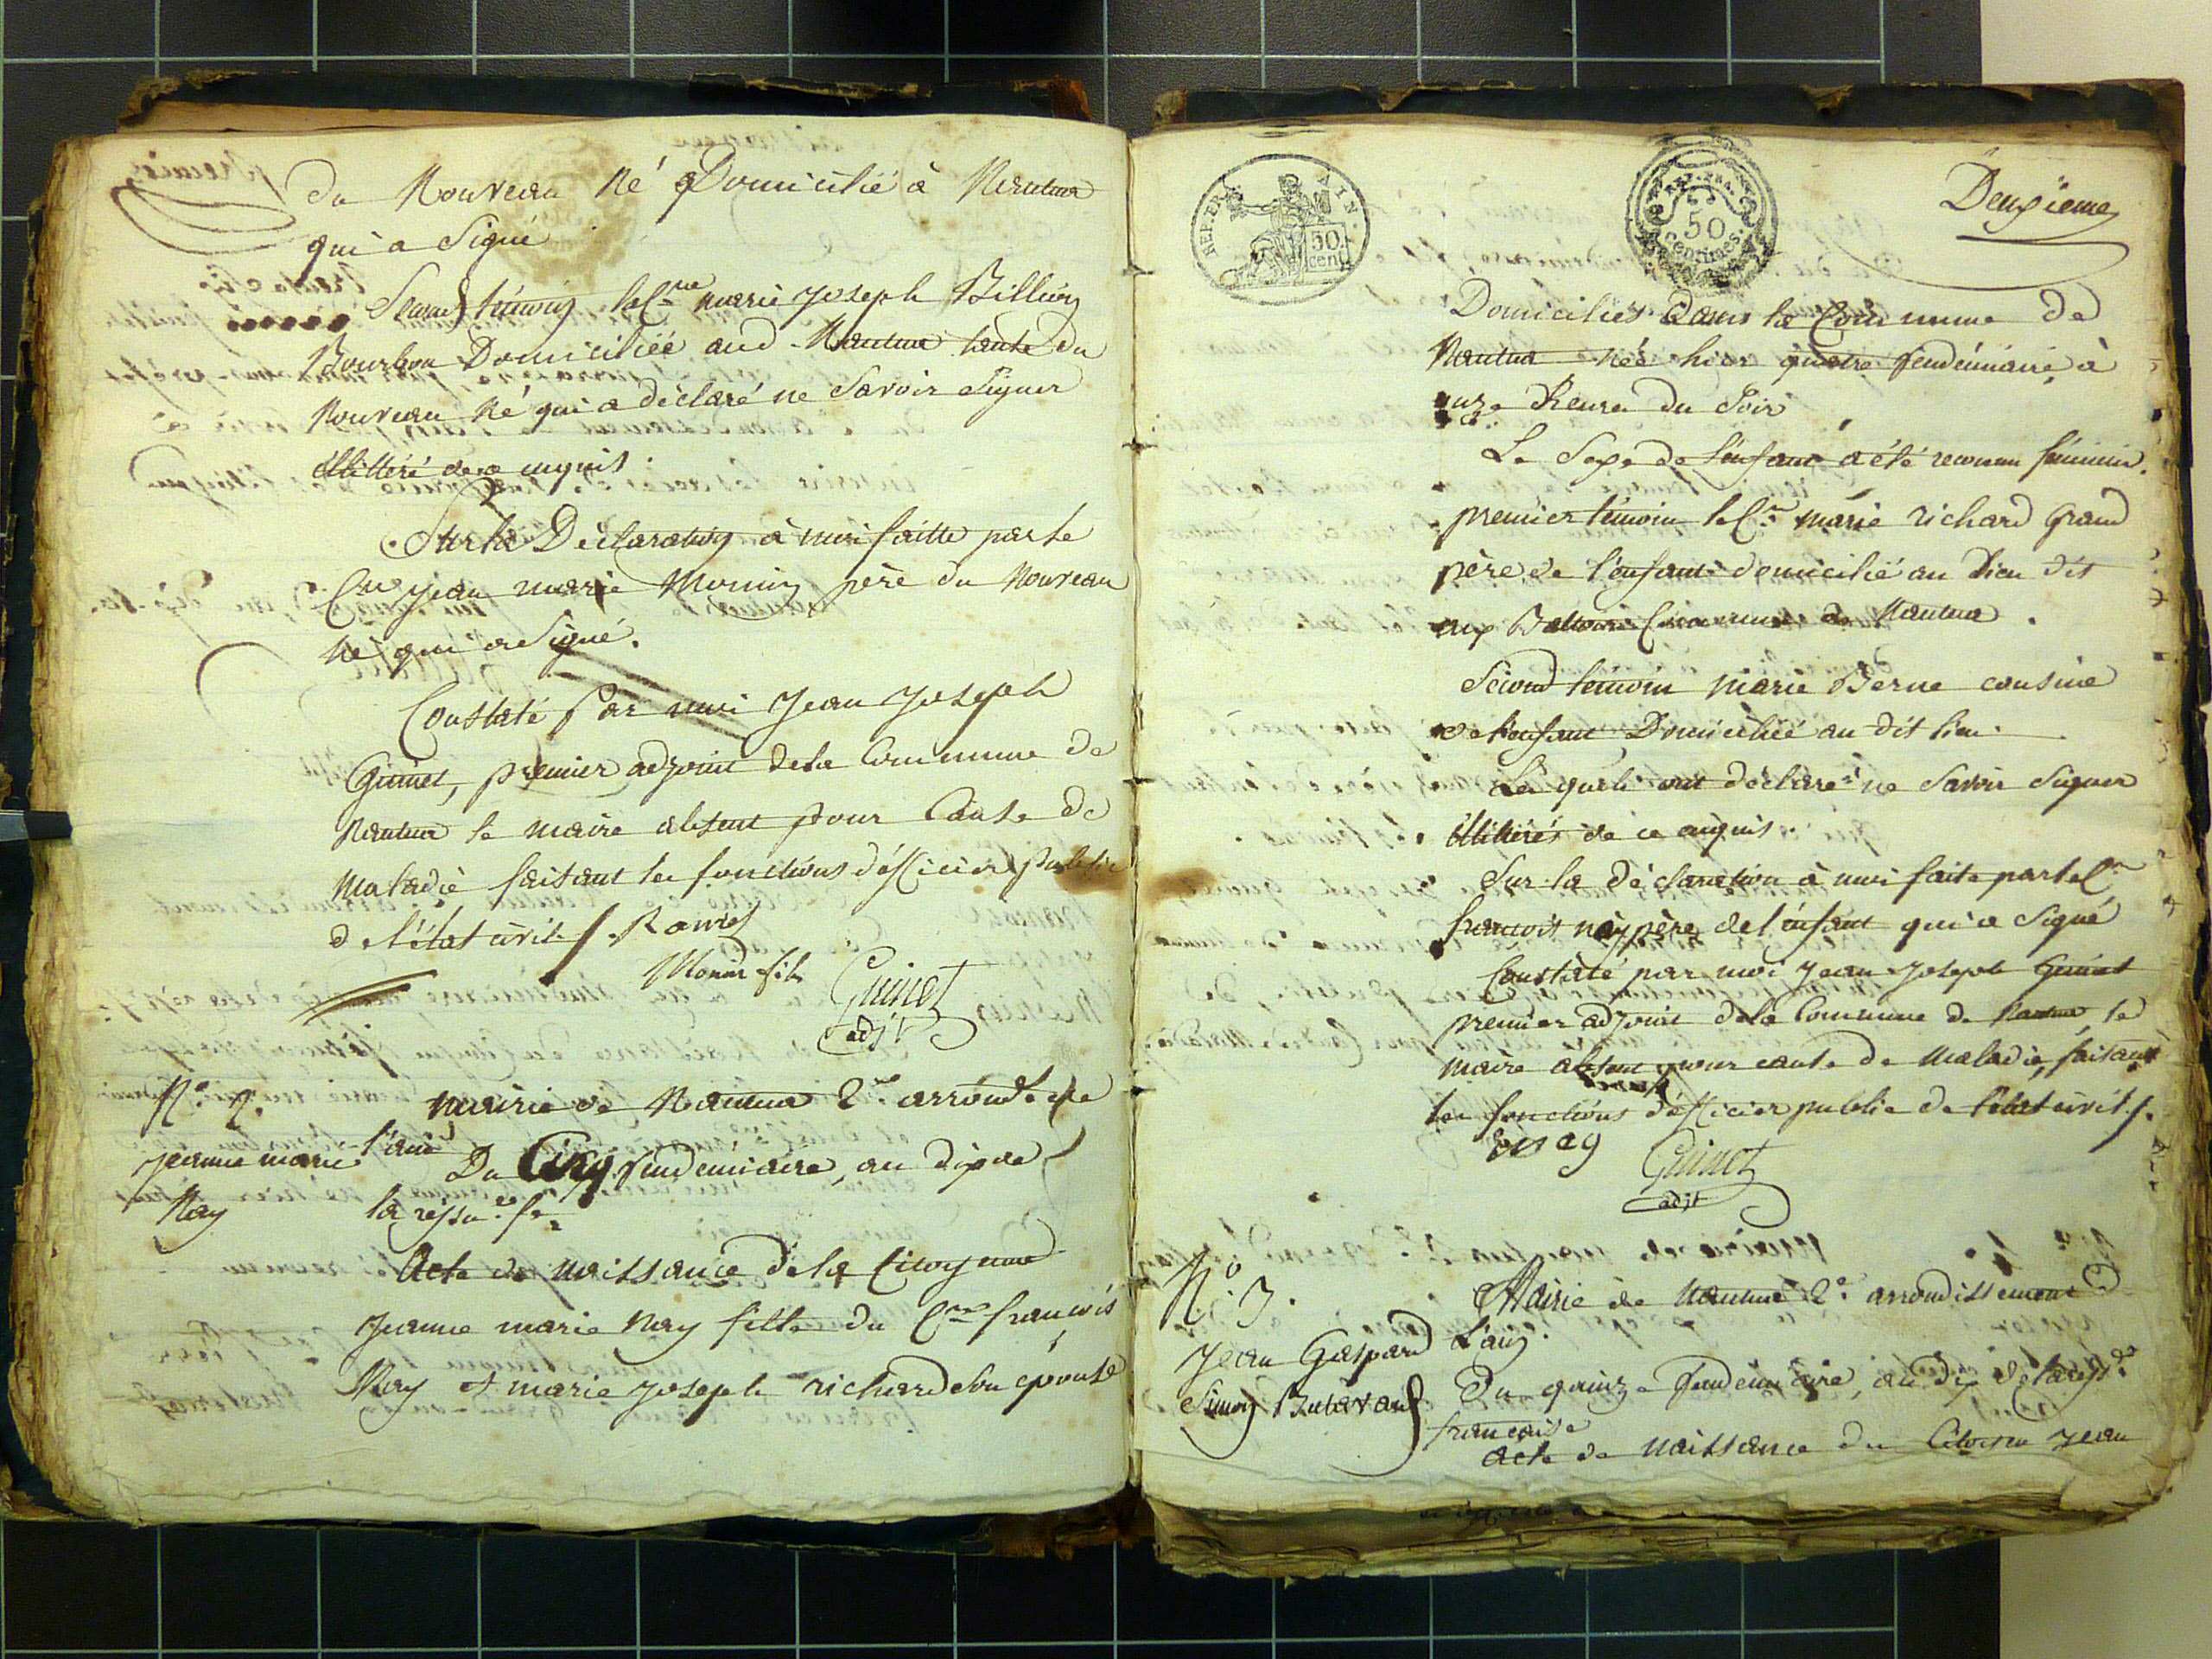 du Nouveau Né Domicilié à Nantua
qui a Signé
Second témoin la C.ne marie Joseph Billion
Bourbon Domiciliée aud. Nantua tante du
Nouveau Né qui a déclaré ne Savoir Signer
illitéré de ce enquis.
Sur la Déclaration à moi faitte par le
C.en Jean marie Monin père du Nouveau
Né qui a Signé.
Constaté Par moi Jean Joseph
Guinet, premier adjoint de la Commune de
Nantua le maire absent pour Cause de
Maladie faisant les fonctions d'officier public
de l'état civil.
Monin fils
Guinet
adjt
N.o 2.
Jeanne marie
Nay
Mairie de Nantua 2.e arrond.t de
l'ain
Du Cinq vendémiaire, an dix de
la répu.e f.se
Acte de Naissance de la Citoyenne
Jeanne marie Nay fille du C.en françois
Nay et marie Joseph richard son épouse
REP. FRA
AIN
50
cent
REP. FRA
50
centimes
Deuxieme
Domiciliés dans la Commune de
Nantua née hier quatre vendémiaire, à
onze heures du Soir
Le Sexe de l'enfant a été reconnu féminin.
premier témoin le C.en marie richard Grand
père de l'enfant domicilié au Lieu dit
aux Battoirs Commune de Nantua.
Second témoin Marie Berne cousine
de l'enfant Domiciliée au dit lieu.
Les quels ont déclaré ne Savoir Signer
illitérés de ce enquis.
Sur la déclaration à moi faite par le C.en
françois nay père de l'enfant qui a Signé
Constaté par moi Jean Joseph Guinet
premier adjoint de la Commune de Nantua, le
maire absent pour cause de Maladie, faisant
les fonctions d'officier public de l'état civil.
Guinet
adjt
N.o 3.
Jean Gaspard
Simon Butavand
Mairie de Nantua 2.e arrondissement
L'ain.
Du quinze vendémiaire, an dix de la rép.e
française
Acte de Naissance du Citoyen Jean